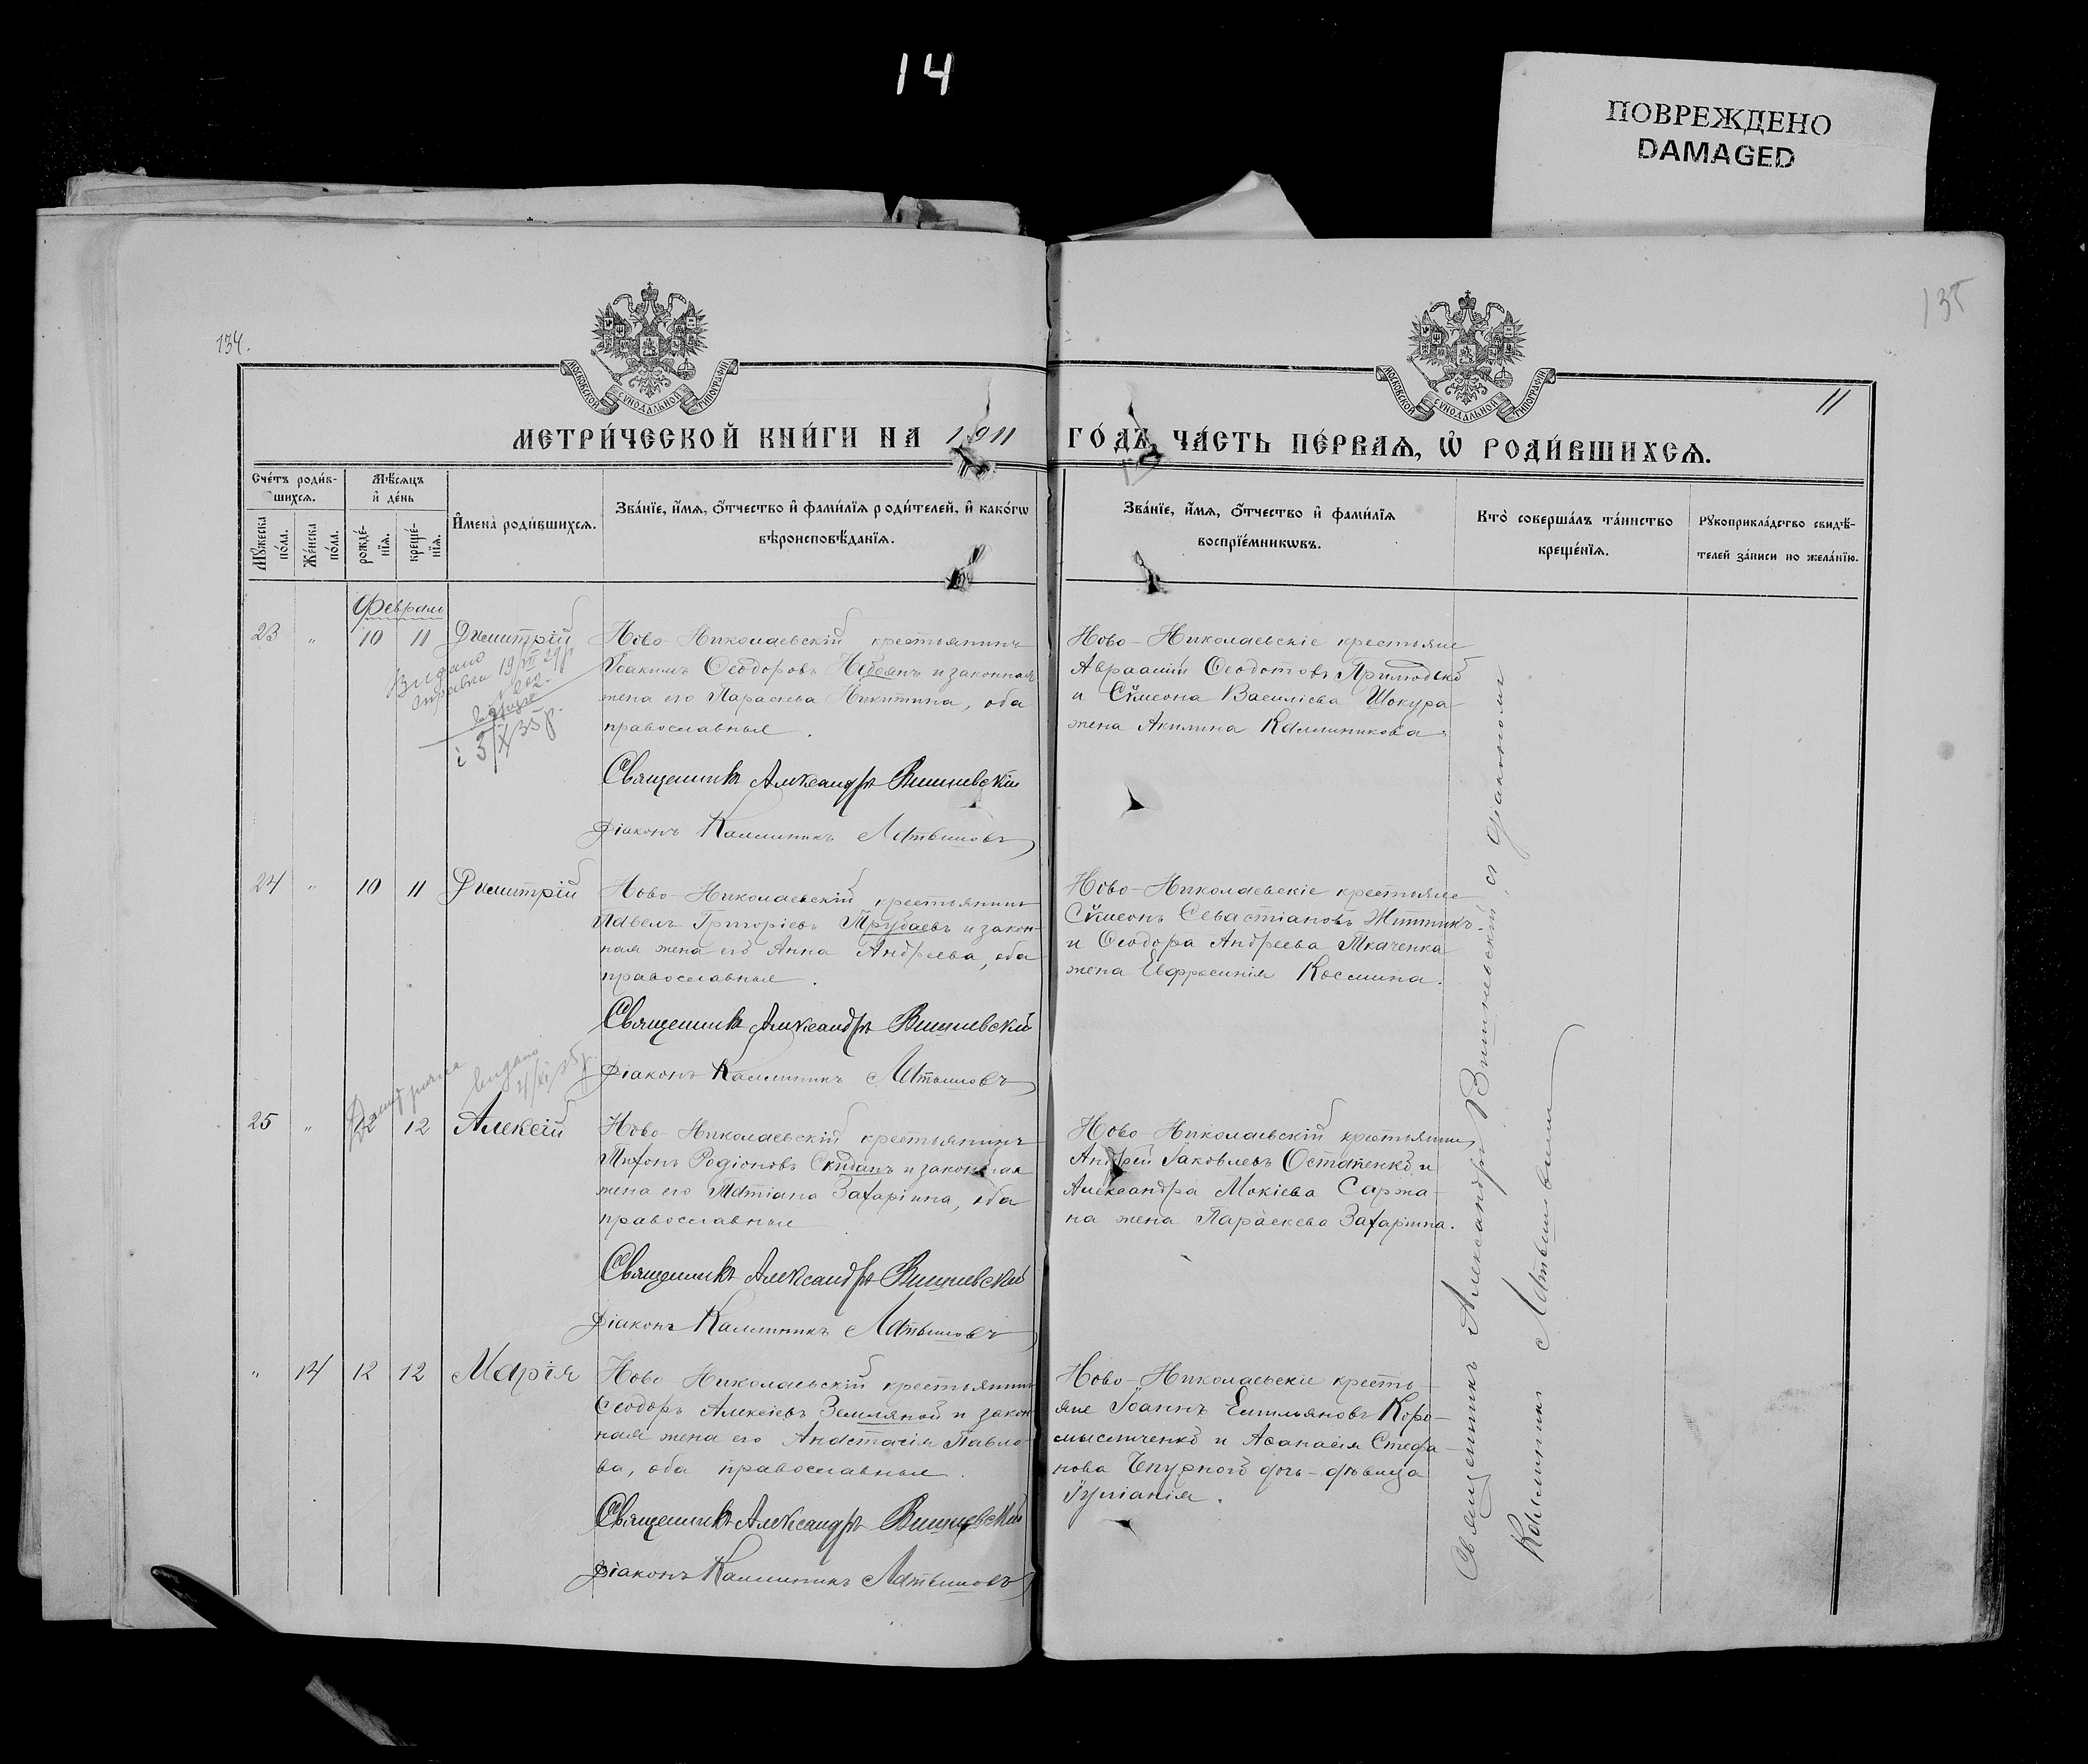 14
ПОВРЕЖДЕНО
DAMAGED
134.
135
11
МОСКОВСКОЙ СУНОДАЛЬНОЙ ТИПОГРАФІИ
МОСКОВСКОЙ СУНОДАЛЬНОЙ ТИПОГРАФІИ
МЕТРИ́ЧЕСКОЙ КНИ́ГИ НА 1911 ГО́ДЪ, ЧА́СТЬ ПЕ́РВАѦ, Ѡ҆ РОДИ́ВШИХСѦ.
Сче́тъ роди́в-
шихсѧ.
Мѣ́сѧцъ
и҆ де́нь
Мꙋ́жеска
по́ла.
Же́нска
по́ла.
рожде́-
нїѧ.
креще́-
нїѧ.
И҆мена̀ роди́вшихсѧ.
Зва́нїе, и҆́мѧ, ѻ҆́тчество и҆ фами́лїѧ роди́телей, и҆ како́гѡ
вѣроисповѣ́данїѧ.
Зва́нїе, и҆́мѧ, ѻ҆́тчество и҆ фами́лїѧ
воспрїе́мникѡвъ.
Кто̀ соверша́лъ та́инство
креще́нїѧ.
Рꙋкоприкла́дство свидѣ́-
телей за́писи по жела́нїю.
Февраль
23 " 10 11 Димитрій
Видано
справки 19/VII 29 р
202.
і 3/X 35 р.
Ново-Николаевскій крестьянинъ
Іоакимъ Ѳеодоровъ Небеянъ и законная
жена его Параскева Никитина, оба
православные.
Священникъ Александръ Вишневскій
Діаконъ Каллиникъ Латышовъ
Ново-Николаевскіе крестьяне
Авраамій Ѳеодотовъ
и Сѵмеона Василіева Шокура
жена Акилина Каллиникова.
24 " 10 11 Димитрій
Ново-Николаевскій крестьянинъ
Павелъ Григоріевъ Трубаевъ и закон-
ная жена его Анна Андреева, оба
православные.
Священникъ Александръ Вишневскій
Діаконъ Каллиникъ Латышовъ
Ново-Николаевскіе крестьяне
Сѵмеонъ Севастіановъ Житникъ
и Ѳеодора Андреева Ткаченка
жена Евфросинія Космина.
видано
21/XI 35 р.
25 " 12 12 Алексій
Ново-Николаевскій крестьянинъ
Тихонъ Родіоновъ Скиданъ и законная
жена его Татіана Захаріина, оба
православные
Священникъ Александръ Вишневскій
Діаконъ Каллиникъ Латышовъ
Ново-Николаевскій крестьянинъ
Андрей Іаковлевъ Остапенко и
Александра Мокіева Саржа-
на жена Параскева Захаріина.
" 14 12 12 Марія
Ново-Николаевскій крестьянинъ
Ѳеодоръ Алексіевъ Земляной и закон-
ная жена его Анастасія Павло-
ва, оба православные.
Священникъ Александръ Вишневскій
Діаконъ Каллиникъ Латышовъ
Ново-Николаевскіе кресть-
яне Іоаннъ Емильяновъ Коро-
мысличенко и Аѳанасія Стефа-
нова Чпурного дочь-дѣвица
Іуліанія.
Священникъ Александръ Вишневскій съ діакономъ
Каллиникомъ Латышовымъ